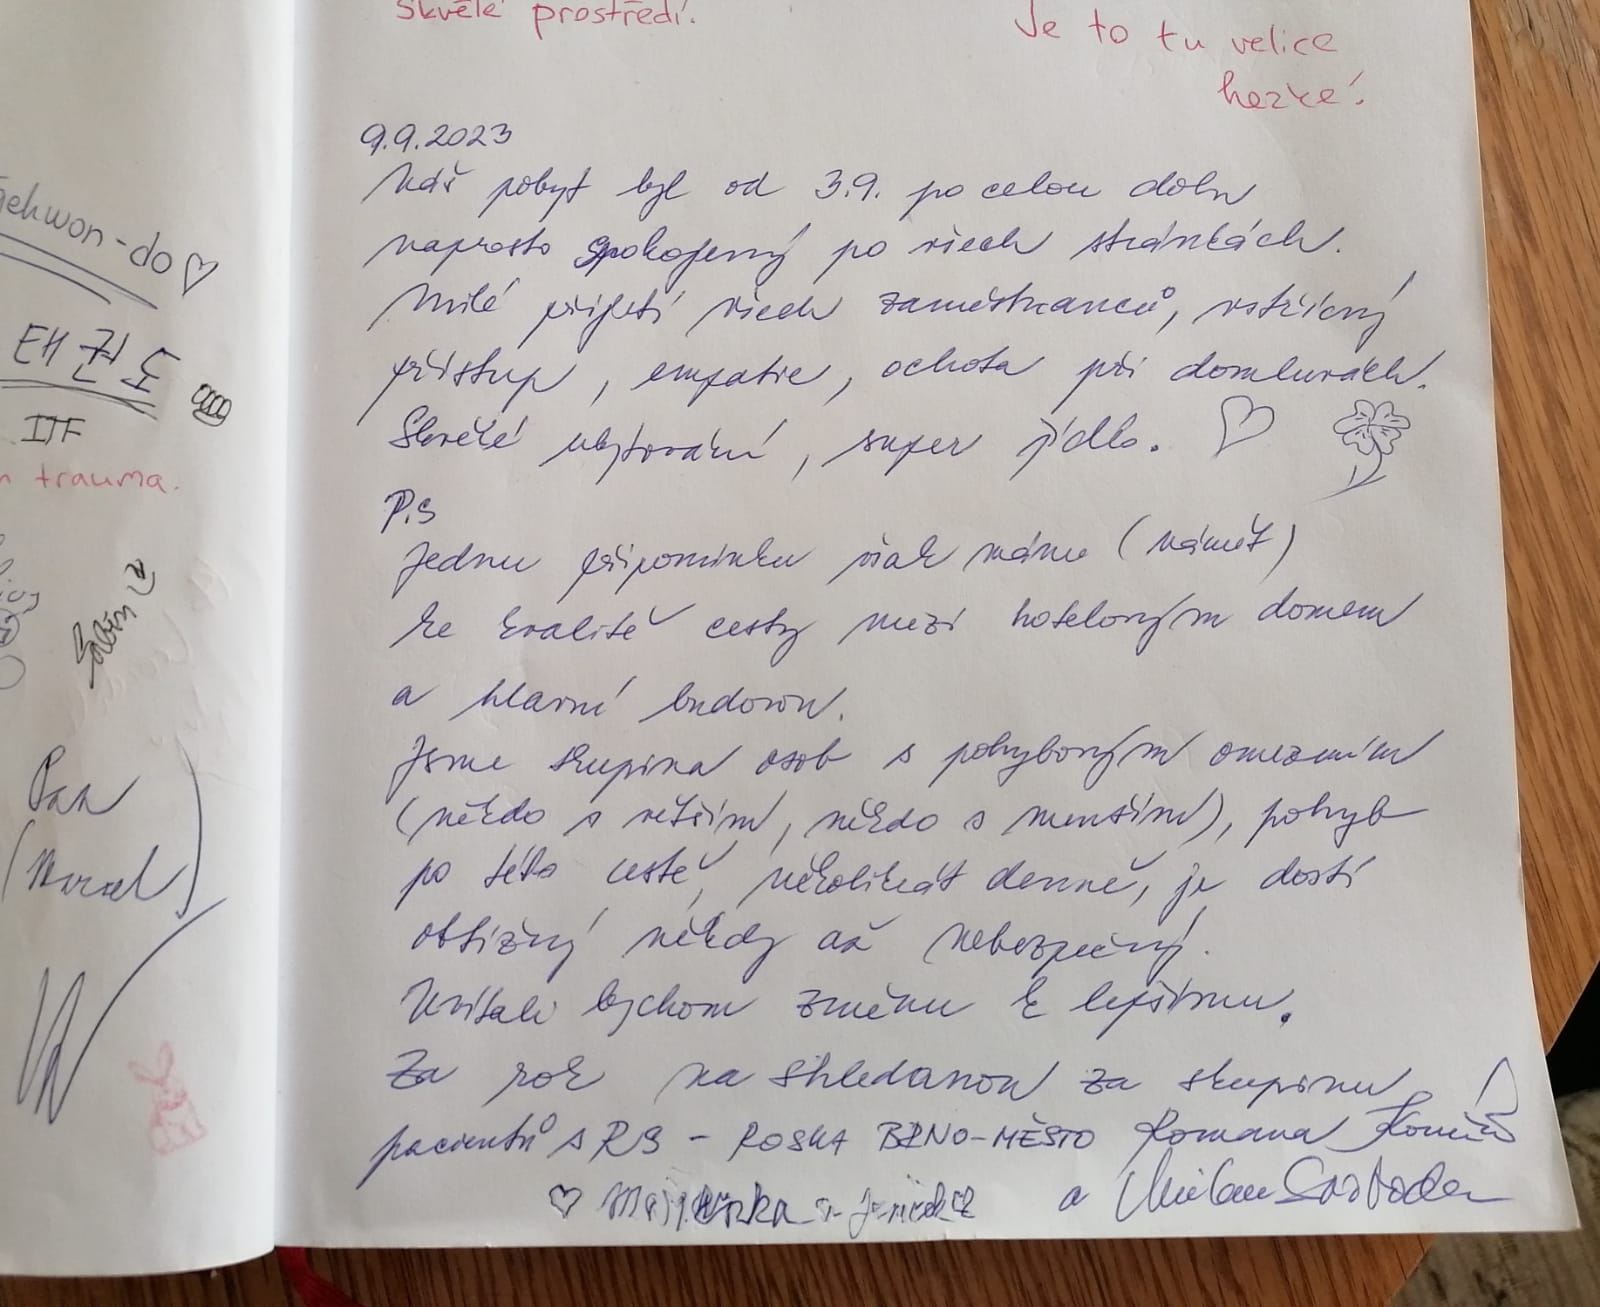 Skvělé prostředí.
Je to tu velice
hezké!
aekwon-do
태권도
ITF
trauma.
Pan
(Marcel)
9.9.2023
Náš pobyt byl od 3.9. po celou dobu
naprosto spokojený po všech stránkách.
Milé přijetí všech zaměstnanců, vstřícný
přístup, empatie, ochota při domluvách.
Skvělé ubytování, super jídlo.
P.S
Jednu připomínku však máme (námět)
ke kvalitě cesty mezi hotelovým domem
a hlavní budovou.
Jsme skupina osob s pohybovým omezením
(někdo s větším, někdo s menším), pohyb
po této cestě, několikrát denně, je dosti
obtížný někdy až nebezpečný.
Uvítali bychom změnu k lepšímu.
Za rok na shledanou za skupinu
pacientů s RS - ROSKA BRNO-MĚSTO Romana
a Milan Svoboda